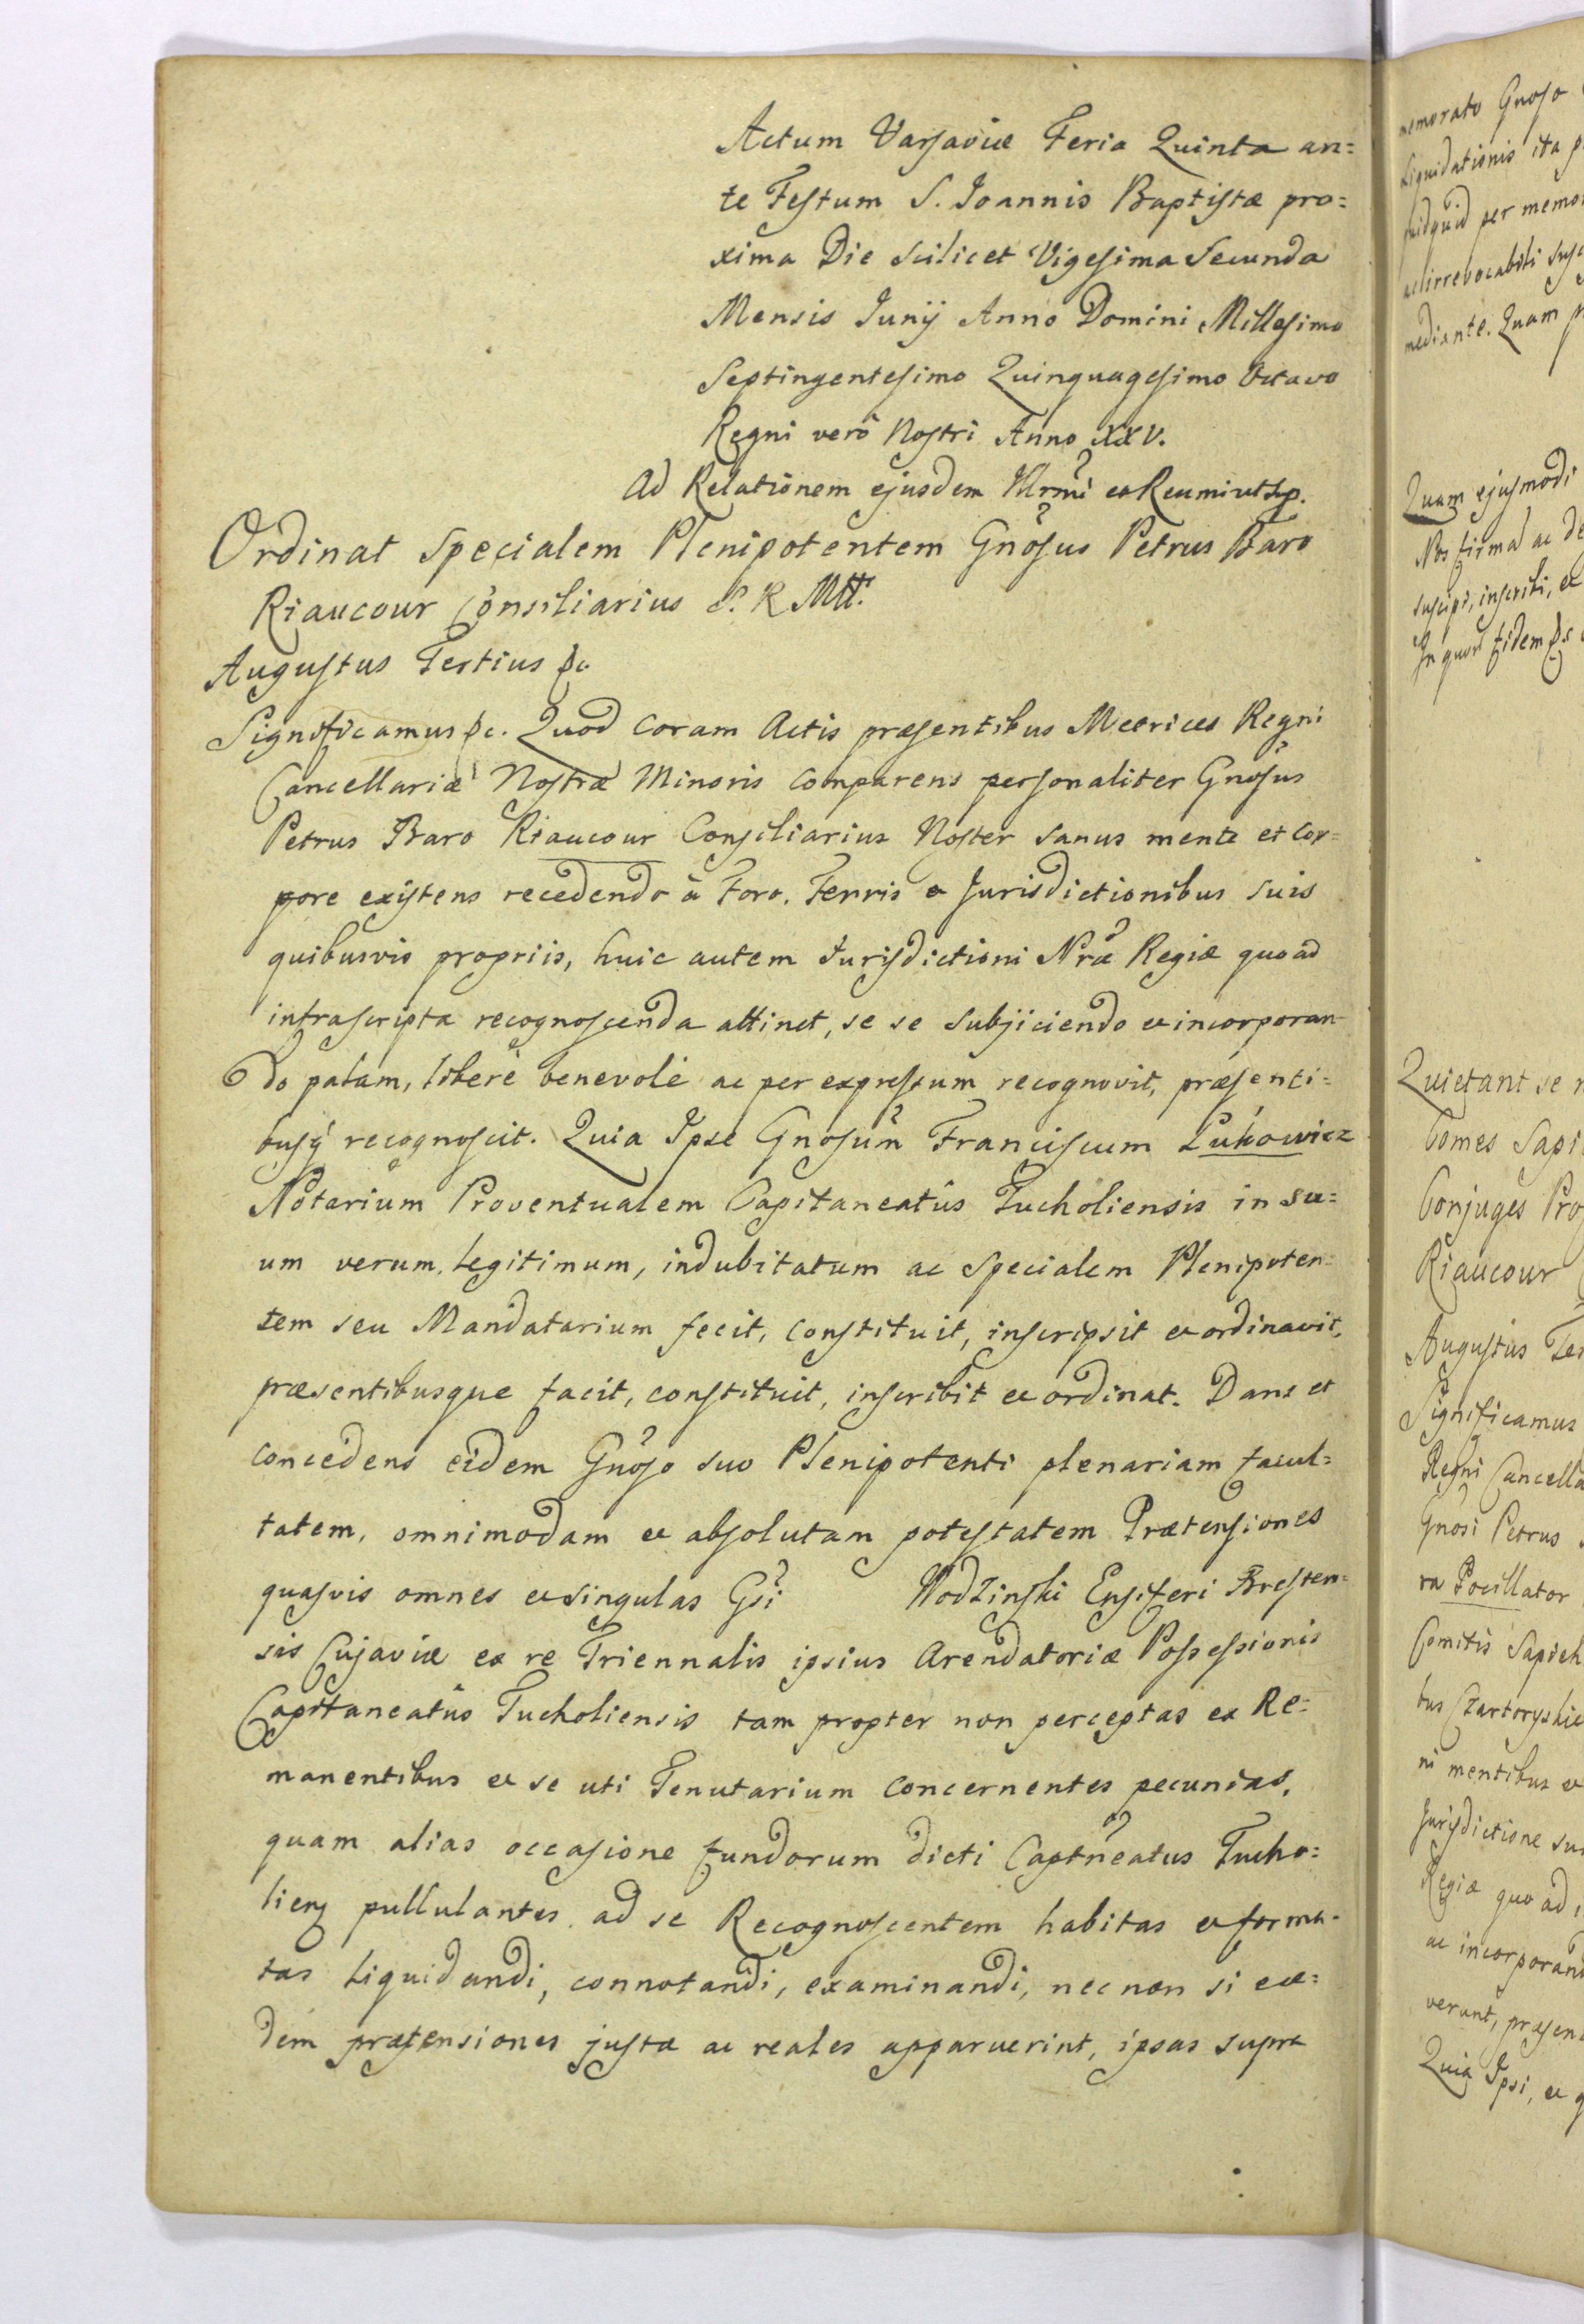 Actum Varsaviæ Feria Quinta an=
te Festum S. Joannis Baptistæ pro=
xima Die scilicet Vigesima Secunda
Mensis Junij Anno Domini Millesimo
Septingentesimo Quinquagesimo Octavo
Regni verò Nostri Anno XXV.
Ad Relationem ejusdem Illrmi et Reumi ut sp.
Ordinat Specialem Plenipotentem Gnosus Petrus Baro
Riaucour Consiliarius S. R. Mtt.
Augustus Tertius &c
Significamus &c. Quod coram Actis præsentibus Metrices Regni
Cancellariæ Nostræ Minoris comparens personaliter Gnosus
Petrus Baro Riaucour Consiliarius Noster sanus mente et cor=
pore existens recedendo à Foro. Terris et Jurisdictionibus suis
quibusvis propriis, huic autem Jurisdictioni Nræ Regiæ quoad
infrascripta recognoscenda attinet, se se subjiciendo et incorporan-
do palam, liberè benevolè ac per expressum recognovit, præsenti=
busq́ recognoscit. Quia Ipse Gnosum Franciscum Lukowicz
Notarium Proventualem Capitaneatûs Tucholiensis in su=
um verum, legitimum, indubitatum ac Specialem Plenipoten=
tem seu Mandatarium fecit, constituit, inscripsit et ordinavit,
præsentibusque facit, constituit, inscribit et ordinat. Dans et
concedens eidem Gnoso suo Plenipotenti plenariam facul=
tatem, omnimodam et absolutam potestatem Prætensiones
quasvis omnes et singulas Gsi Wodzinski Ensiferi Bresten=
sis Cujaviæ ex re Triennalis ipsius Arendatoriæ Possessionis
Capitaneatûs Tucholiensis tam propter non perceptas ex Re=
manentibus et se uti Tenutarium concernentes pecunias,
quam alias occasione fundorum dicti Captneatus Tucho=
lien pullulantes, ad se Recognoscentem habitas et forma-
tas liquidandi, connotandi, examinandi, nec non si eæ=
dem prætensiones justæ ac reales apparuerint, ipsas supra
memorato Gnoso
Liquidationis ita
quidquid per memo
ac irrevocabili
mediante. Quam
Quam ejusmodi
Nos firma ac de
suscipi, inscribi, et
In quor fidem &c
Quietant se
Comes Sapi
Conjuges Pro
Riaucour
Augustus Ter
Significamus
Regni Cancella
Gnosi Petrus
ra Pocillator
Comitis Sapieh
bus Czartoryskie
ni mentibus et
Jurisdictione su
Regiæ quo ad
ac incorporan
verunt, præsen
Quia Ipsi, et